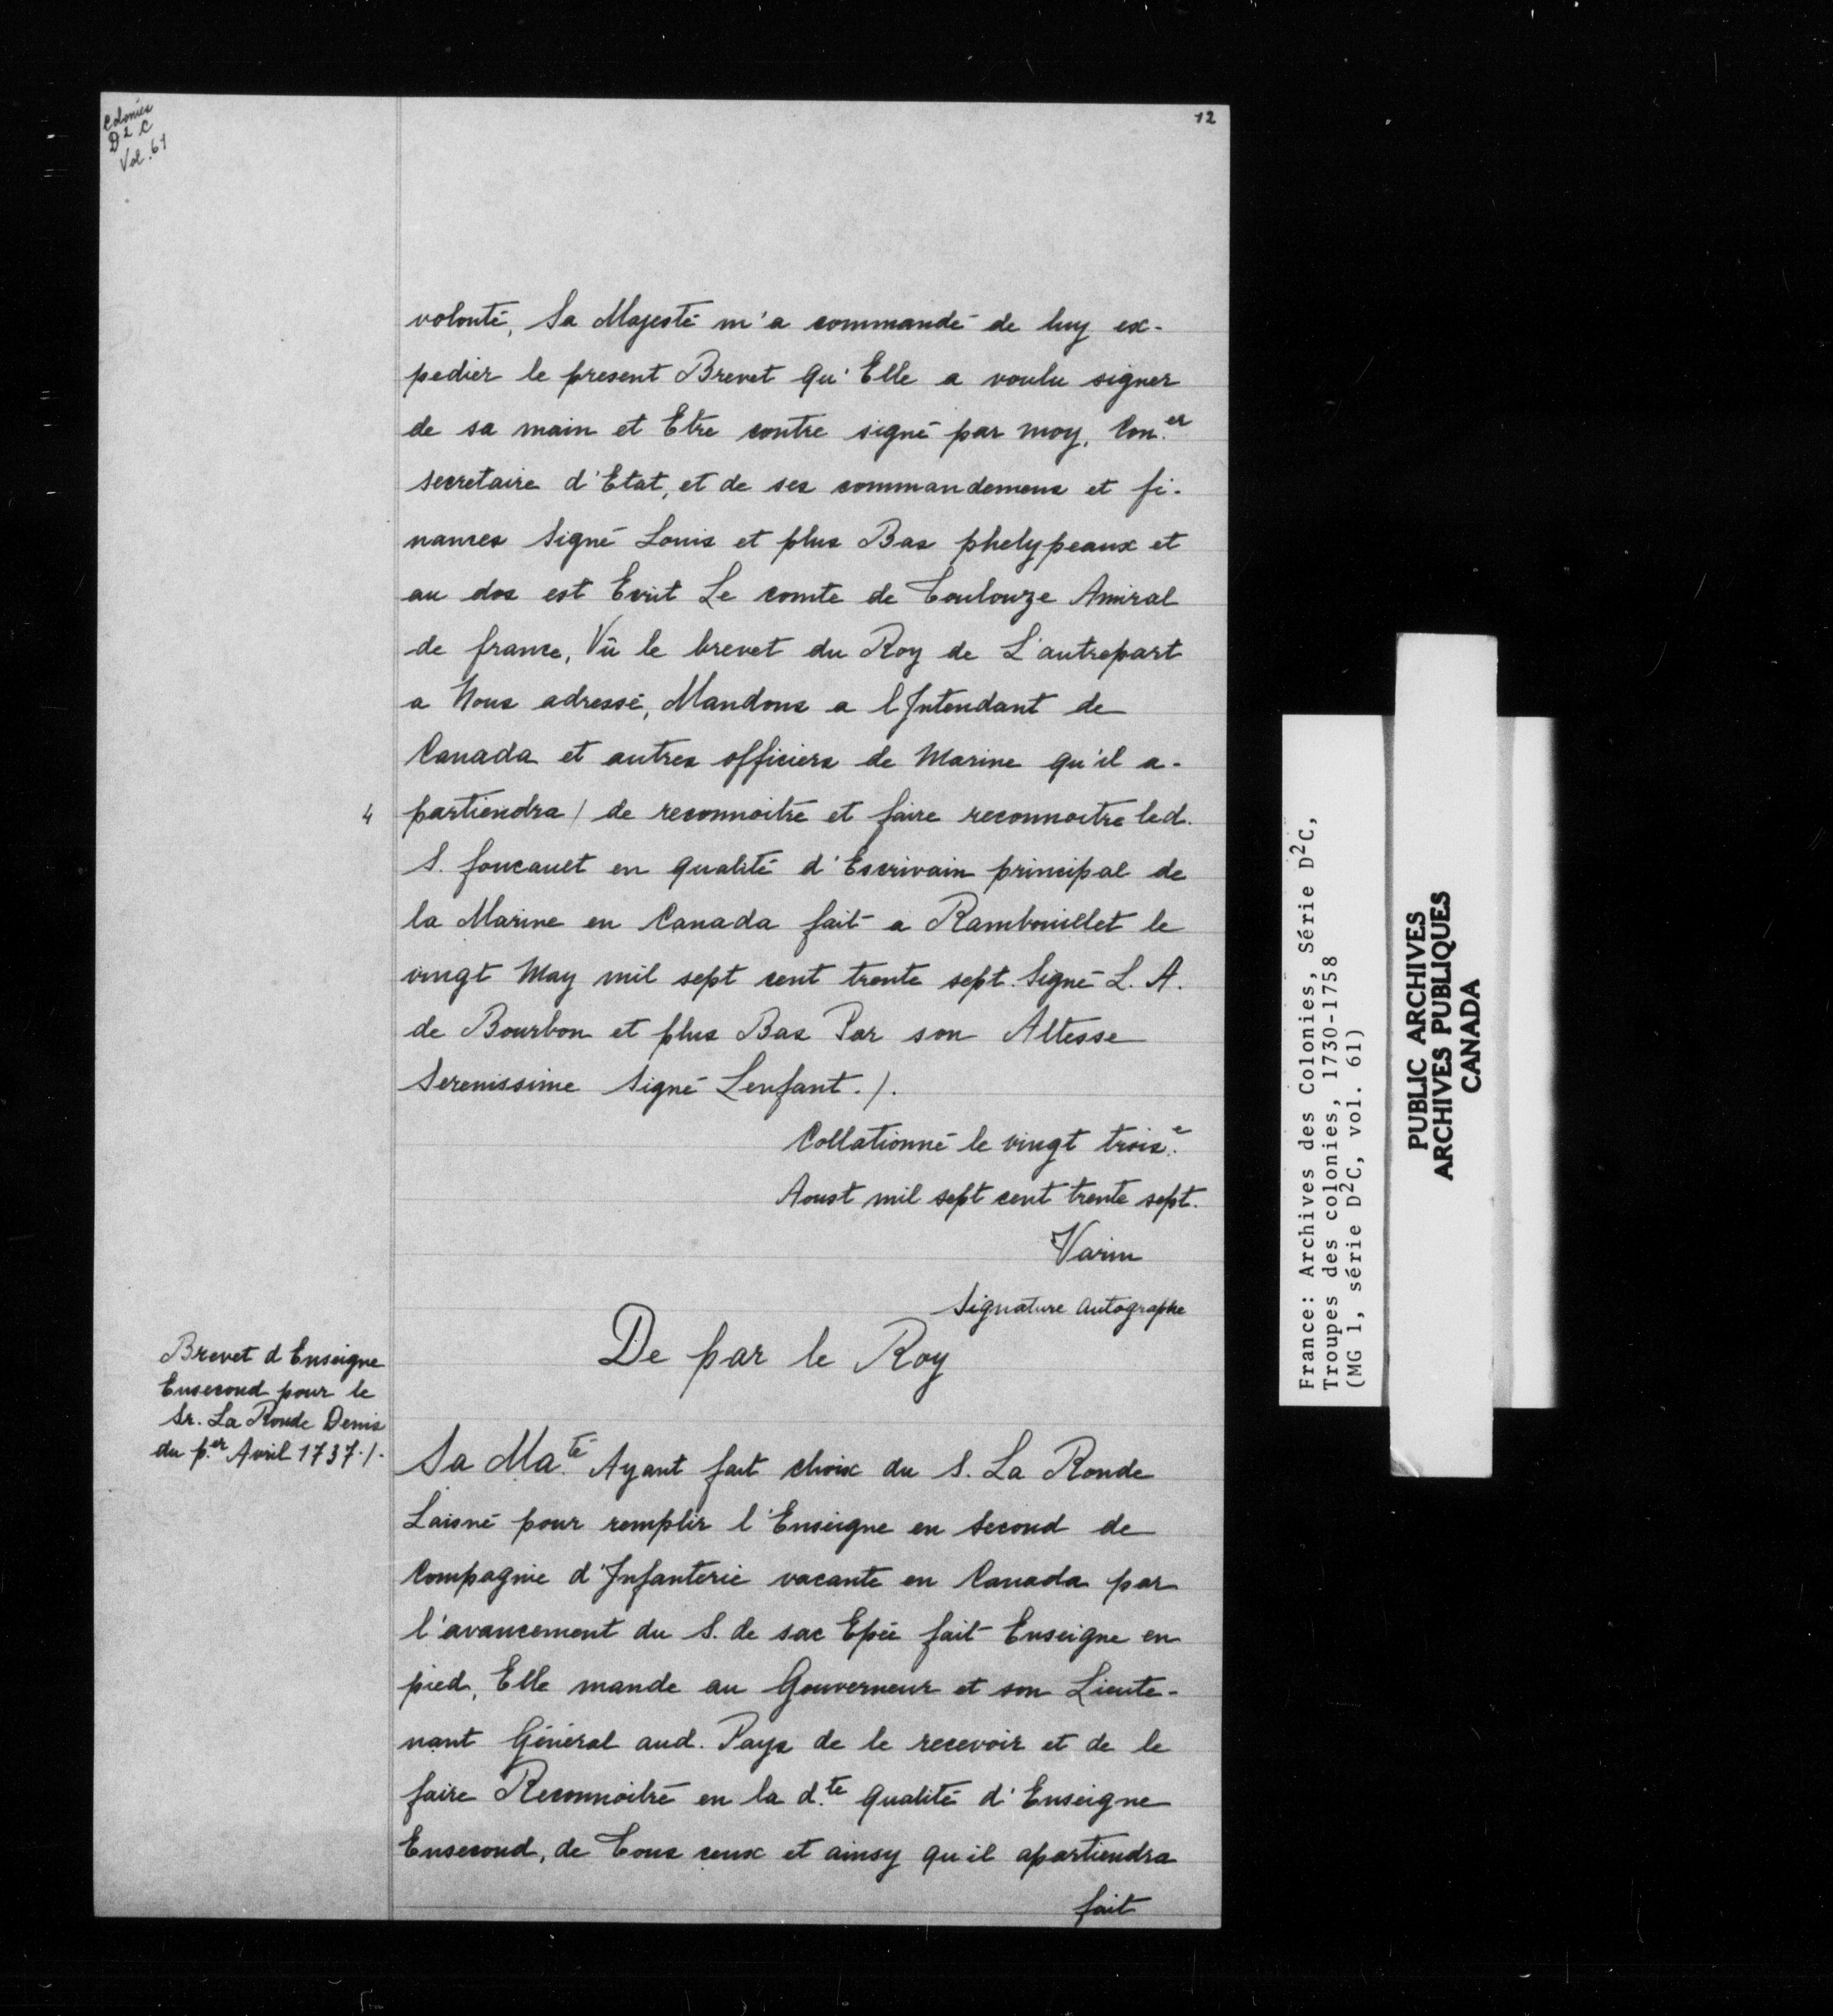 Colonies
D2 C
Vol. 61
12
volonté, Sa Majesté m'a commandé de luy ex-
pedier le present Brevet qu'Elle a voulu signer
de sa main et Etre contre signé par moy, Con.er
secretaire d'Etat, et de ses commandemens et fi-
nances Signé Louis et plus Bas phelypeaux et
au dos est Ecrit Le comte de Toulouze Amiral
de france, Vû le brevet du Roy de L'autrepart
a Nous adressé, Mandons a l'Intendant de
Canada et autres officiers de Marine qu'il a-
4 partiendra / de reconnoitre et faire reconnoitre led.
S. foucault en qualité d'Escrivain principal de
la Marine en Canada fait a Rambouillet le
vingt May mil sept cent trente sept. Signé L. A.
de Bourbon et plus Bas Par son Altesse
Serenissime Signé Lenfant./.
Collationné le vingt trois.e
Aoust mil sept cent trente sept.
Varin
Signature autographe
De par le Roy
Brevet d'Enseigne
Ensecond pour le
Sr. La Ronde Denis
du p.er Avril 1737./.
Sa Ma.té Ayant fait choix du S. La Ronde
Laisné pour remplir l'Enseigne en Second de
Compagnie d'Infanterie vacante en Canada par
l'avancement du S. de sac Epée fait Enseigne en
pied, Elle mande au Gouverneur et son Lieute-
nant Général aud. Pays de le recevoir et de le
faire Reconnoitré en la d.te qualité d'Enseigne
Ensecond, de Tous ceux et ainsy qu'il apartiendra
fait
France: Archives des Colonies, Série D2C,
Troupes des colonies, 1730-1758
(MG 1, série D2C, vol. 61)
PUBLIC ARCHIVES
ARCHIVES PUBLIQUES
CANADA